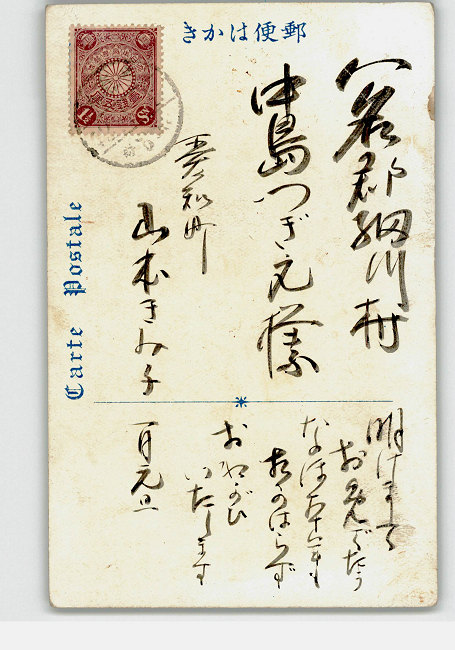 郵便はかき
八名郡細川村
中島つぎ
山本きみ子
明けまして
おめでたう
なほ本年も
相かはらず
おねがひ
いたします
一月元旦
Carte Postale